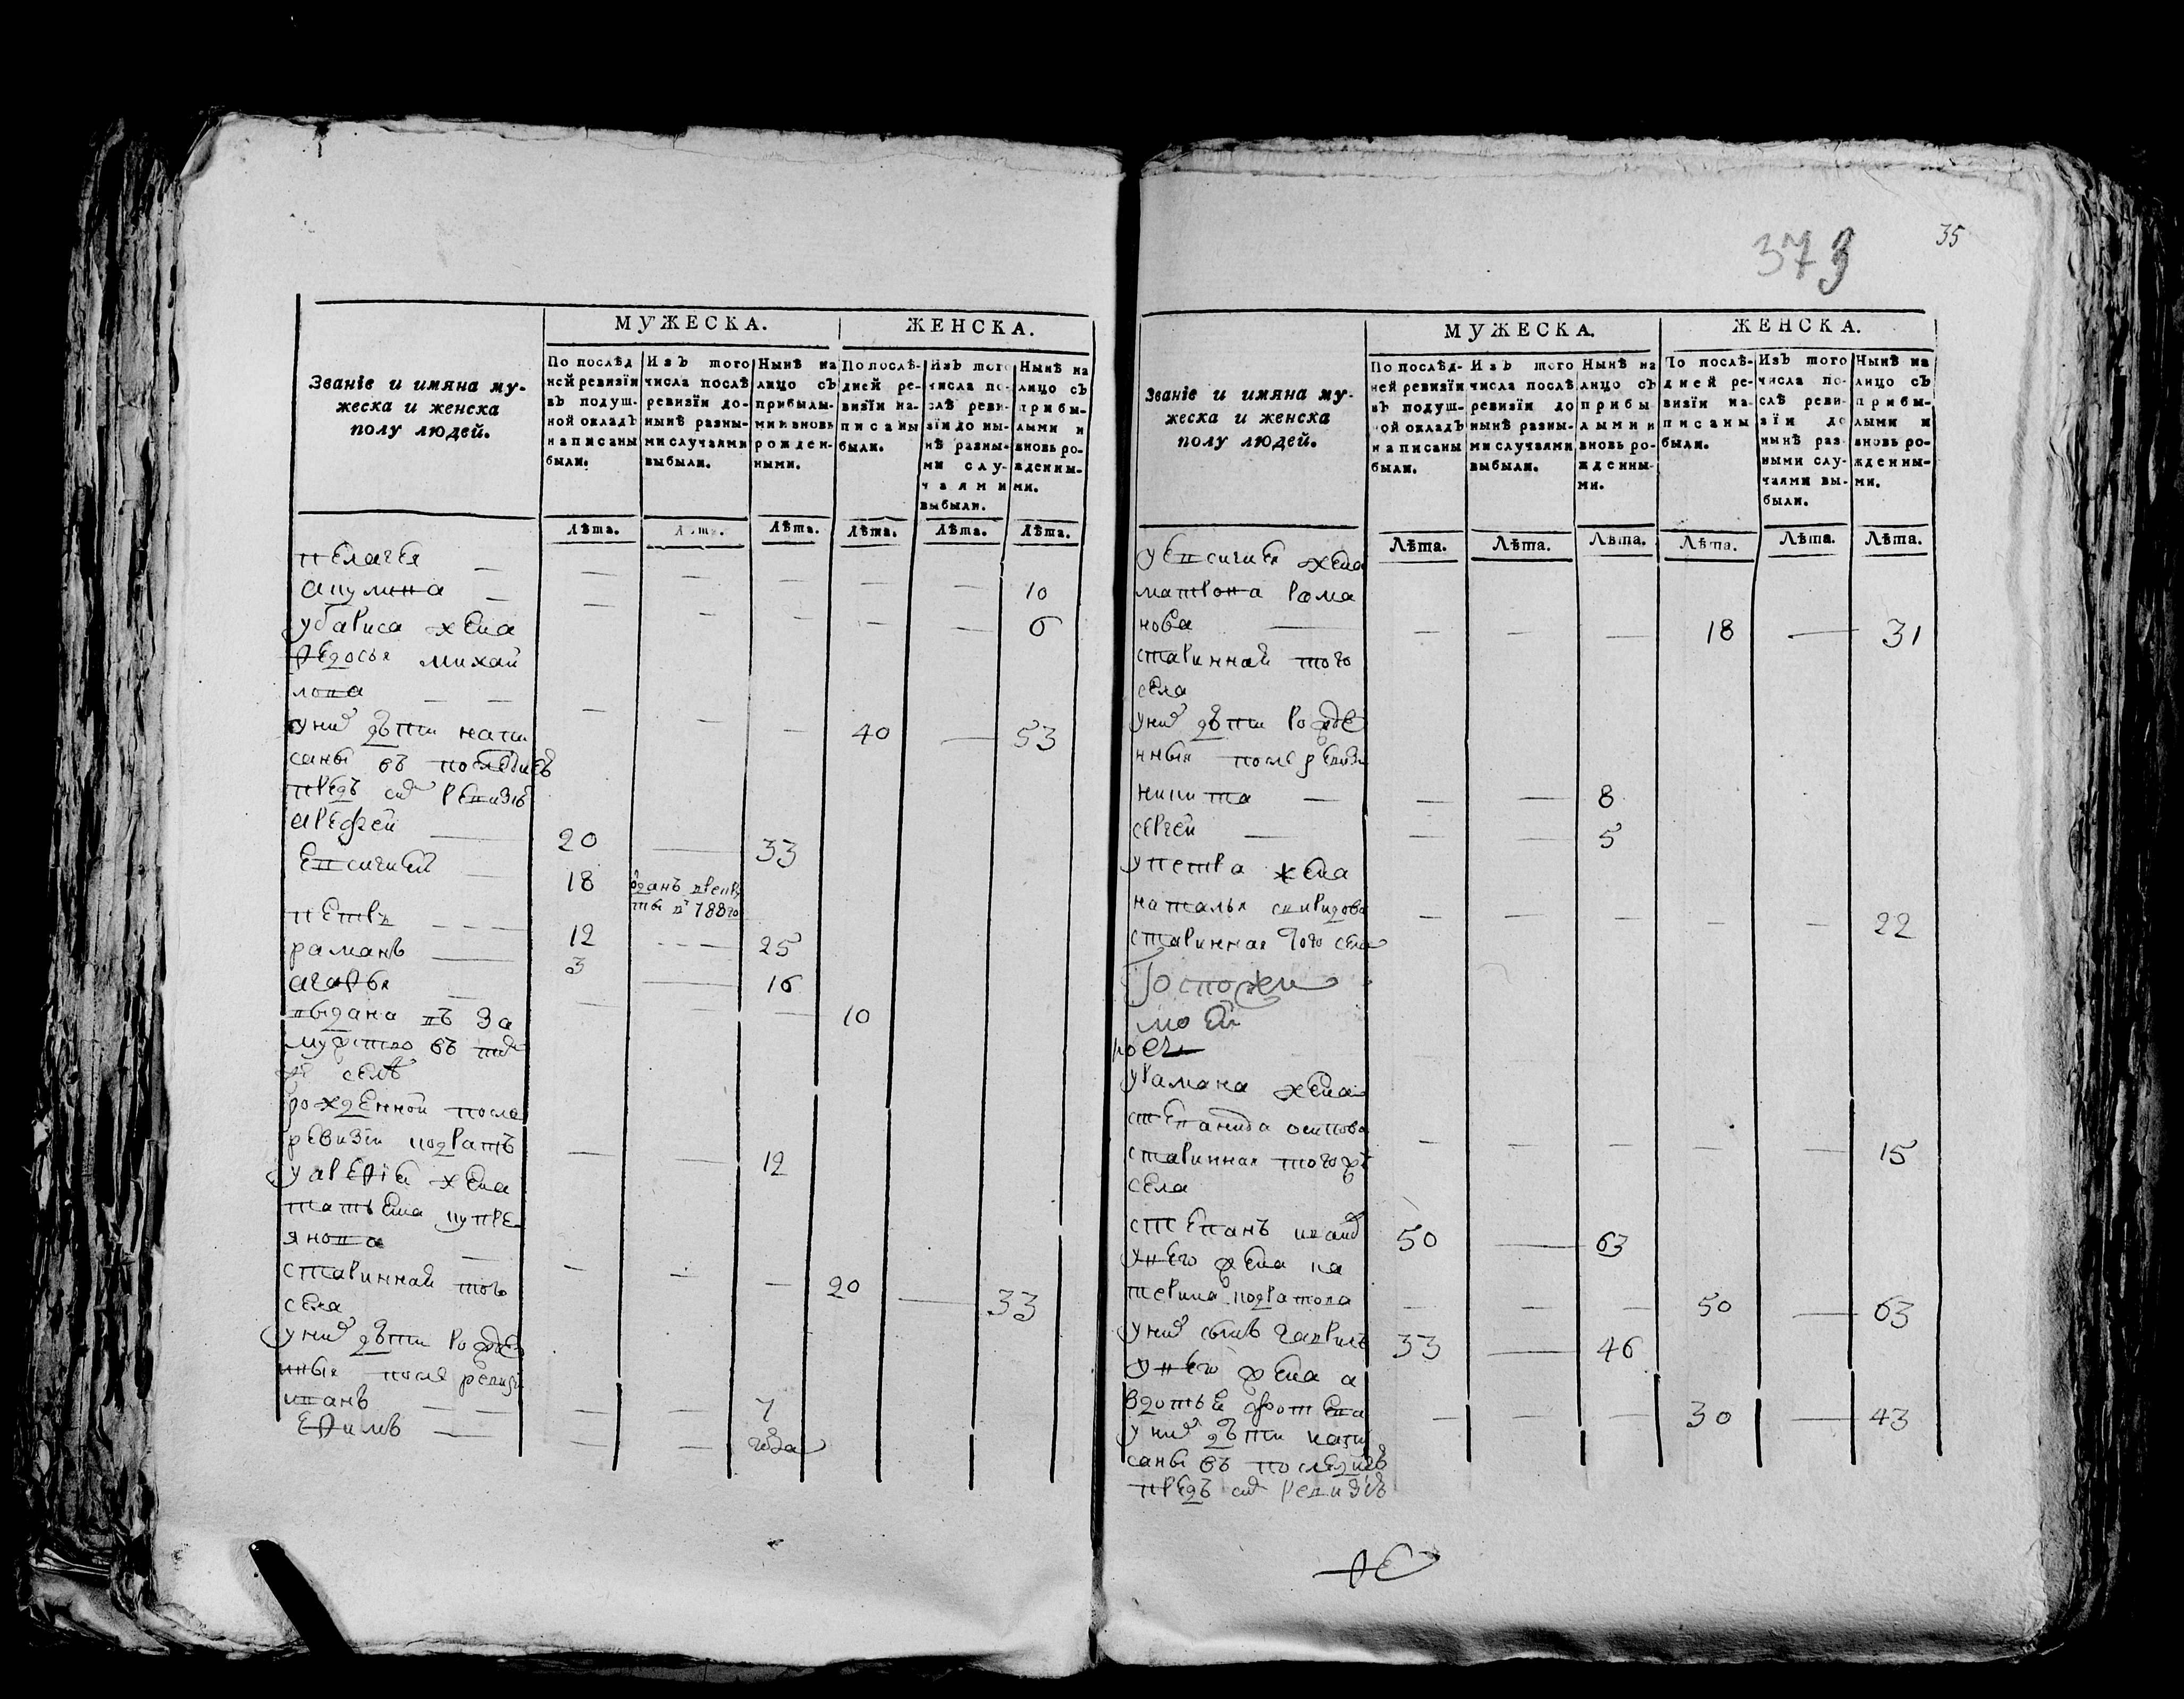 373
35
МУЖЕСКА.
ЖЕНСКА.
Званіе и имяна му-
жеска и женска
полу людей.
По послѣд
ней ревизїи
въ подуш-
ной окладъ
написаны
были.
Изъ того
числа послѣ
ревизїи до-
нынѣ разны-
ми случаями
выбыли.
Нынѣ на
лицо съ
прибылы-
ми и вновь
рожден-
ными.
По послѣ-
дней ре-
визїи на-
писаны
были.
Изъ того
числа по-
слѣ реви-
зїи до ны-
нѣ разны-
ми слу-
чаями
выбыли.
Нынѣ на
лицо съ
прибы-
лыми и
вновь ро-
жденны-
ми.
Лѣта. Лѣта. Лѣта. Лѣта. Лѣта. Лѣта.
пелагея
акулина 10
убариса жена 6
федосья михаи
лова
униᵡ дѣти напи 40 53
саны въ последнеѣ
предъ сиᵡ ревизиѣ
арефей 20 33
Евсигней 18
петръ 12 25
раманъ 3 16
агафья 10
выдана въ за
мужство въ
селѣ
рожденной после
ревизїи кодратъ 12
уарефїя жена
татьена купре
янова 20 33
стариннай того
села
униᵡ дѣти рожде
нныя после ревизи
иванъ 7
Ефимъ
МУЖЕСКА.
ЖЕНСКА.
Званіе и имяна му-
жеска и женска
полу людей.
По послѣд-
ней ревизїи
въ подуш-
ной окладъ
написаны
были.
Изъ того
числа послѣ
ревизїи до
нынѣ разны-
ми случаями
выбыли.
Нынѣ на
лицо съ
прибы
лыми и
вновь ро-
жденны-
ми.
По послѣ-
дней ре-
визїи на-
писаны
были.
Изъ того
числа по-
слѣ реви-
зїи до
нынѣ раз
ными слу-
чаями вы-
были.
Нынѣ на
лицо съ
прибы-
лыми и
вновь ро-
жденны-
ми.
Лѣта. Лѣта. Лѣта. Лѣта. Лѣта. Лѣта.
уЕвсигнея жена
матрона рома
нова 18 31
стариннай того
села
униᵡ дѣти рожде
нныя после ревизи
никита 8
сергей 5
упетра жена
наталья спиридова 22
старинная того села
Госпожи
моей
урамана жена
степанида осипова 15
старинная тогожъ
села
степанъ иванᵒ 50 63
унего жена ка
терина кодратова 50 63
униᵡ сынъ гаврила 33 46
унего жена а
вдотья фотеева 30 43
униᵡ дѣти напи
саны въ последнеѣ
предъ сиᵡ ревизїѣ